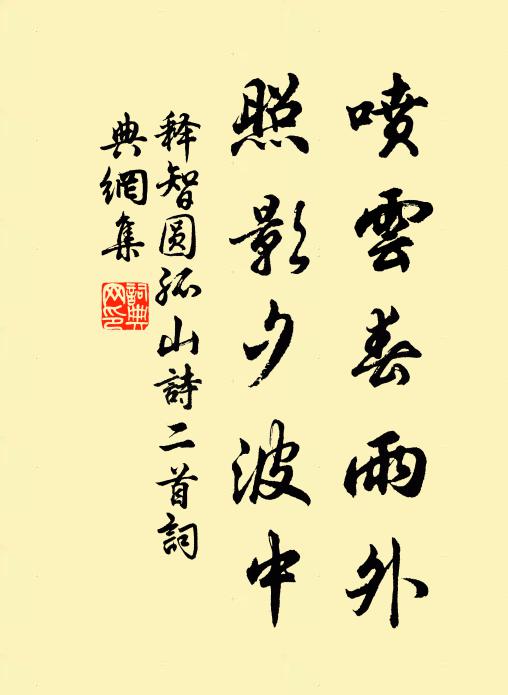 噴雲春雨外
照影夕波中
释智圆孤山詩二首詞
典網集
詞典
网印